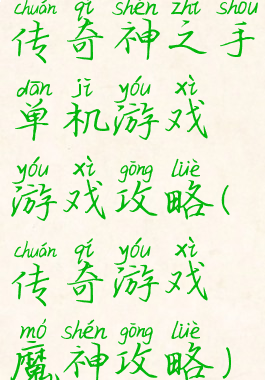 chuán qí shén zhī shǒu
传奇神之手
dān jī yóu xì
单机游戏
yóu xì gōng lüè
游戏攻略(
chuán qí yóu xì
传奇游戏
mó shén gōng lüè
魔神攻略)